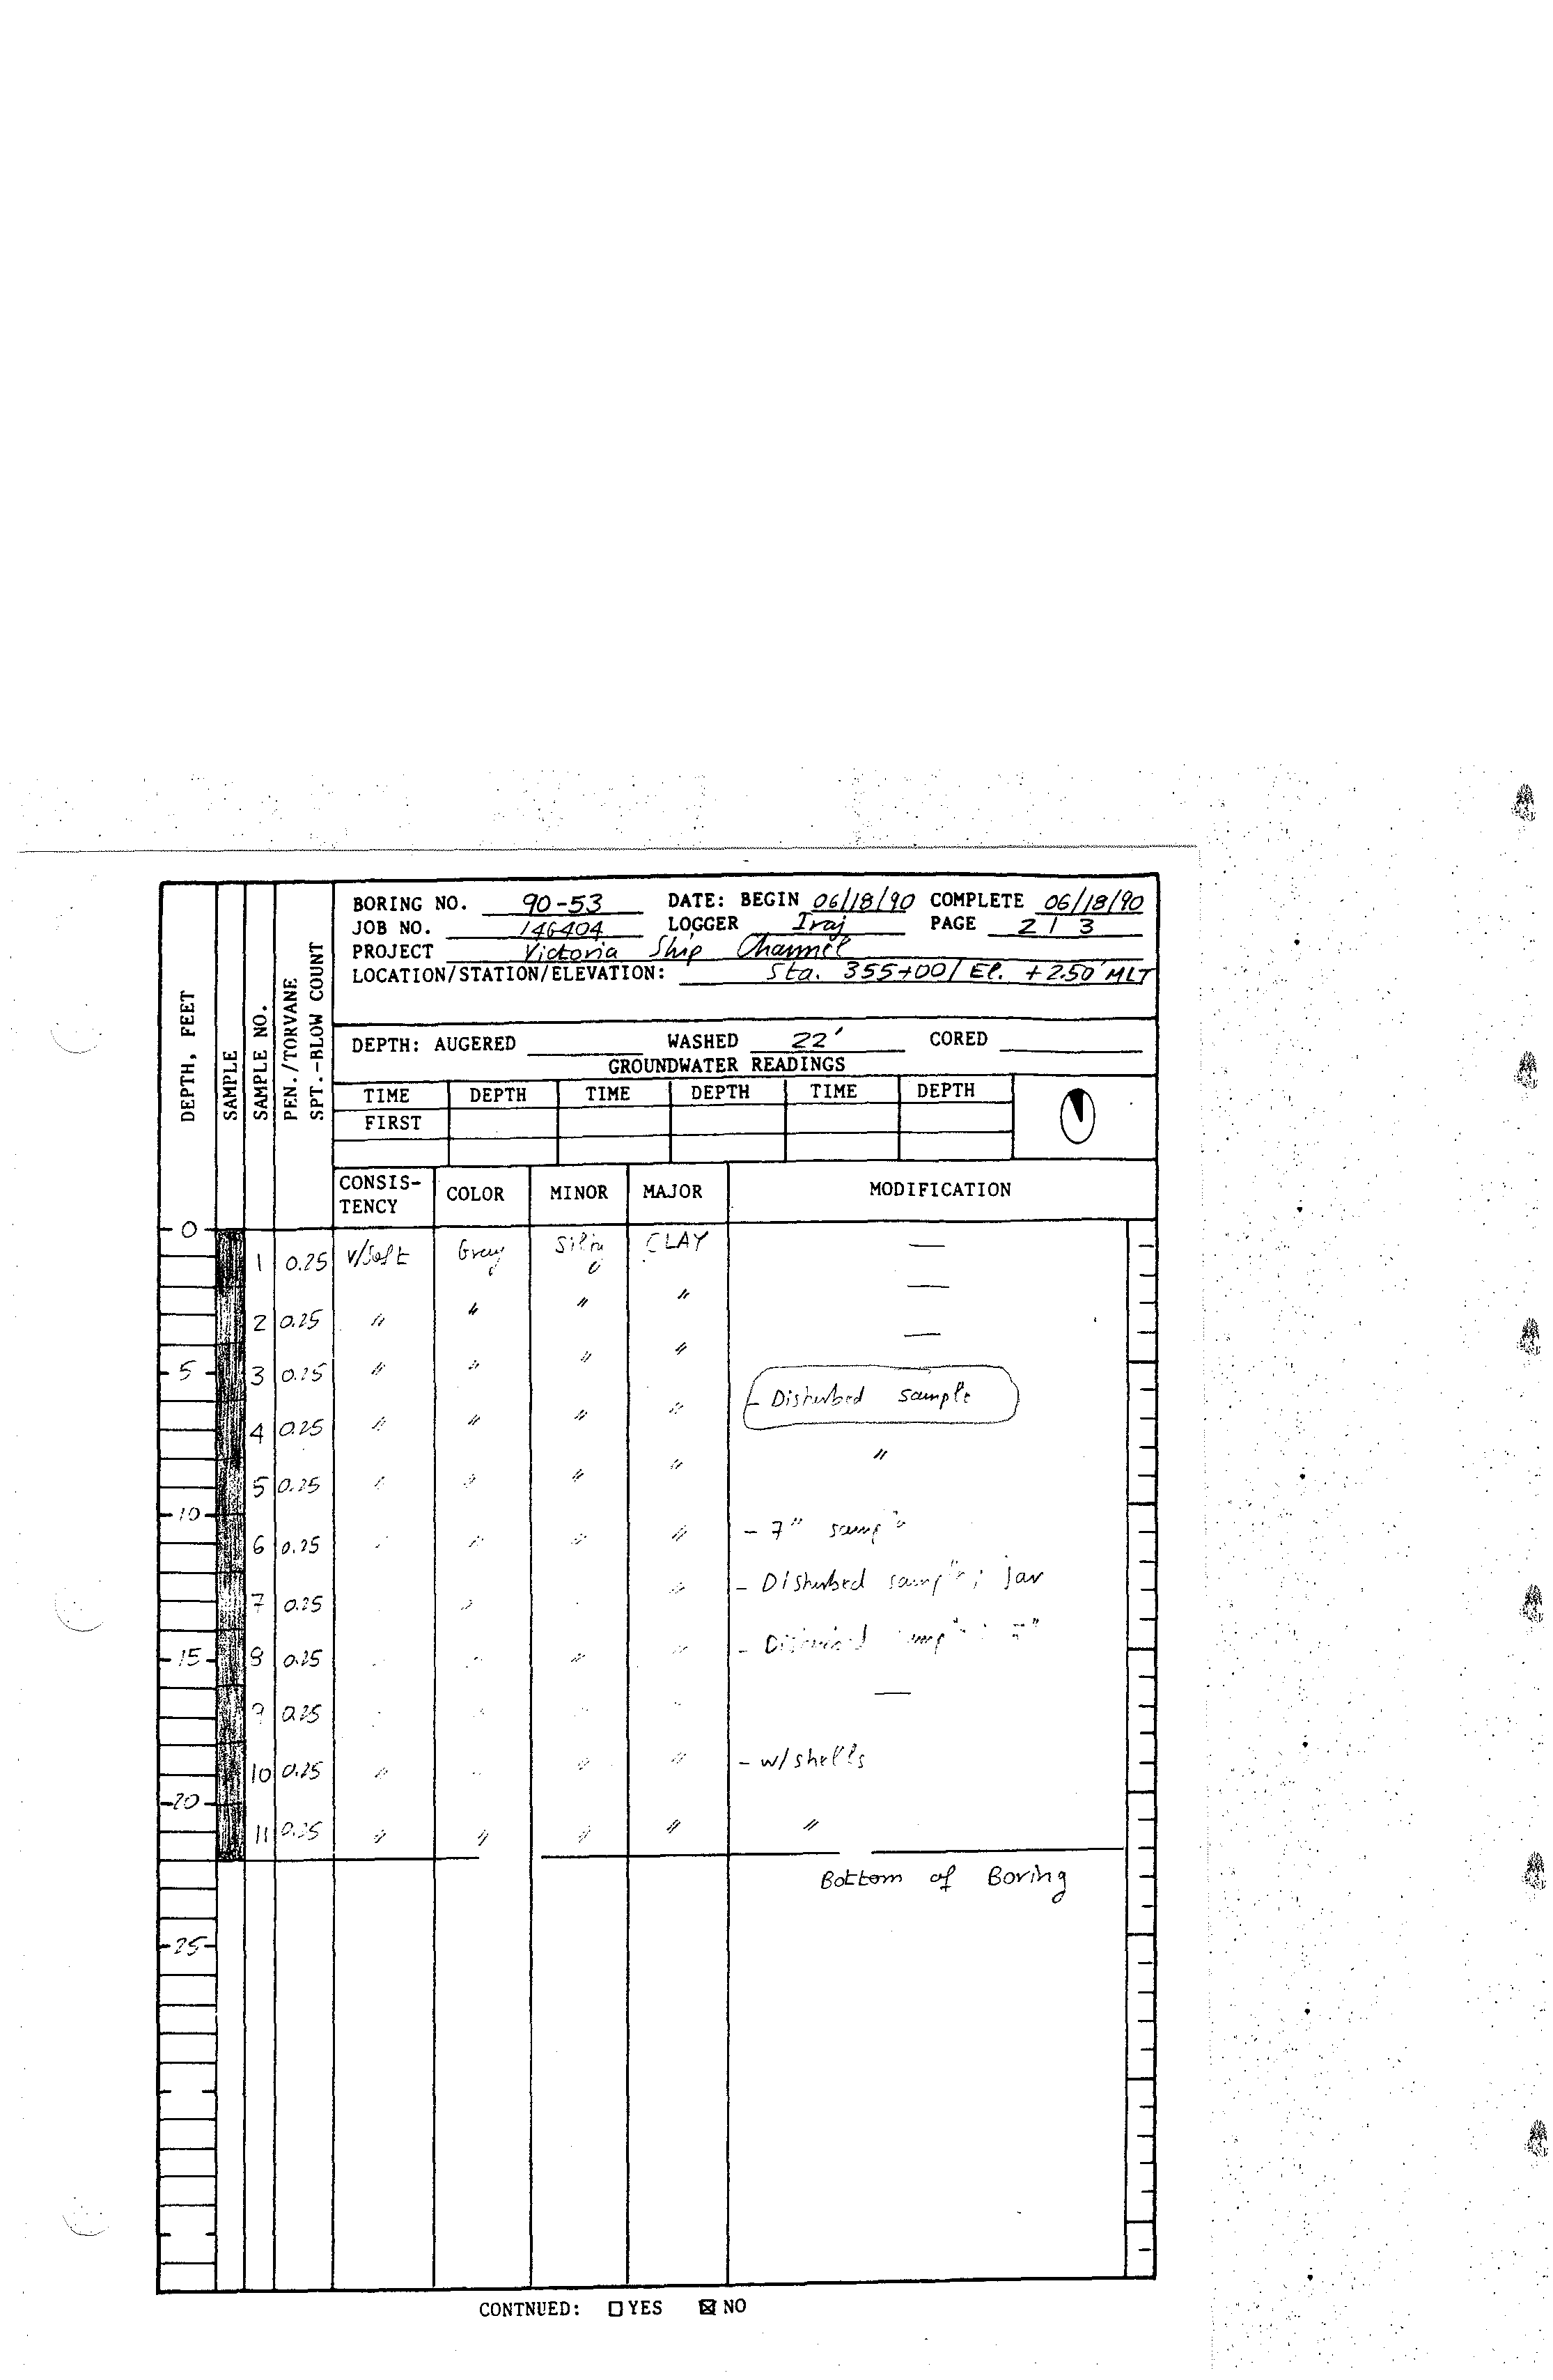 BORING NO. 90-53 DATE: BEGIN 06/18/90 COMPLETE 06/18/90
JOB NO. 146404 LOGGER Iraj PAGE 2 / 3
PROJECT Victoria Ship Channel
LOCATION/STATION/ELEVATION: Sta. 355+00/ El. +2.50' MLT
DEPTH, FEET
SAMPLE
SAMPLE NO.
PEN./TORVANE
SPT.-BLOW COUNT
DEPTH: AUGERED WASHED 22' CORED
GROUNDWATER READINGS
TIME DEPTH TIME DEPTH TIME DEPTH
FIRST
CONSIS-TENCY COLOR MINOR MAJOR MODIFICATION
0
1 0.25 v/Soft Gray Silty CLAY —
2 0.25 " " " " —
5 3 0.25 " " " " —
4 0.25 " " " " - Disturbed sample
5 0.25 " " " " "
10
6 0.25 " " " " - 7" sample
7 0.25 " " - Disturbed sample; jar
15 8 0.25 " " " "
9 0.25 " " " " —
10 0.25 " " " " - w/shells
20
11 0.25 " " " " "
Bottom of Boring
25
CONTNUED: ☐ YES ☒ NO